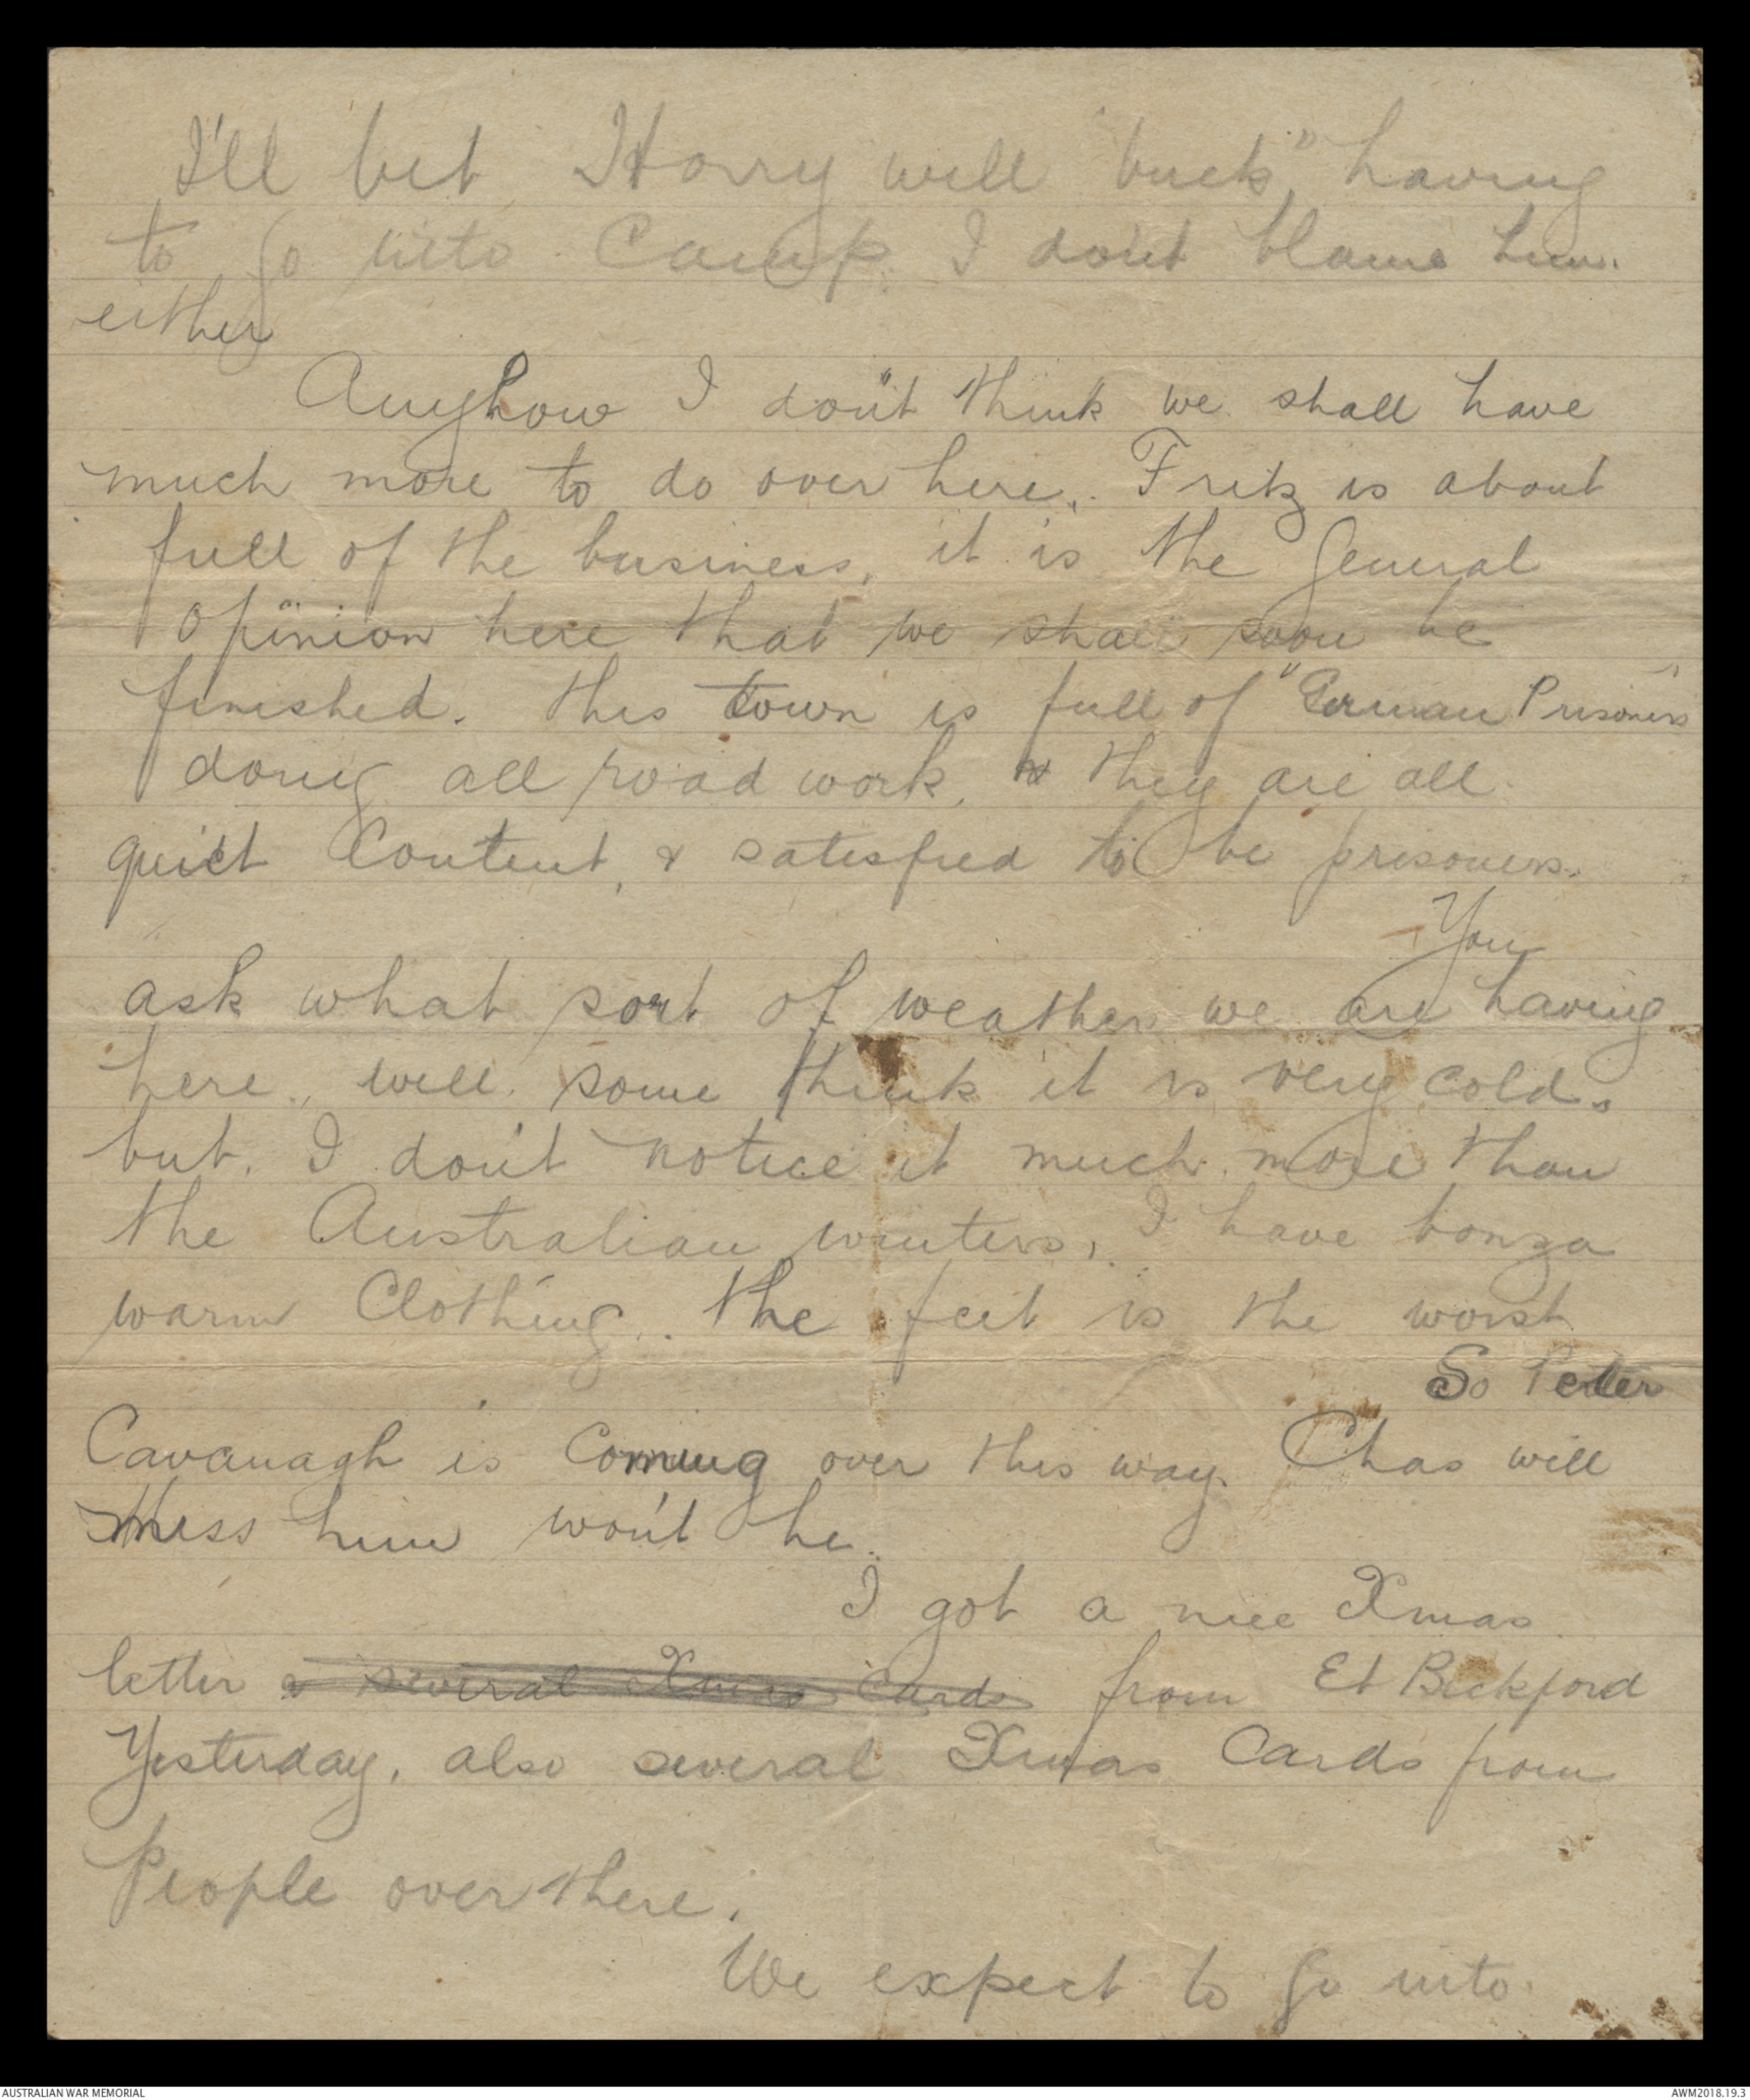 I'll bet Harry will "buck" having
to go into Camp. I don't blame him
either
Anyhow I don't think we shall have
much more to do over here. Fritz is about
full of the business, it is the general
opinion here that we shall soon be
finished. this town is full of "German Prisoners"
doing all road work, & they are all
quiet content, & satisfied to be prisoners.
You
ask what sort of weather we are having
here, well some think it is very cold.
but. I don't notice it much more than
the Australian winters, I have bonza
warm Clothing.. the feet is the worst
So Peter
Cavanagh is Coming over this way. Chas will
miss him won't he.
I got a nice Xmas
letter & several Xmas Cards from Et Bickford
Yesterday, also several Xmas Cards from
People over there.
We expect to go into
AUSTRALIAN WAR MEMORIAL
AWM2018.19.3